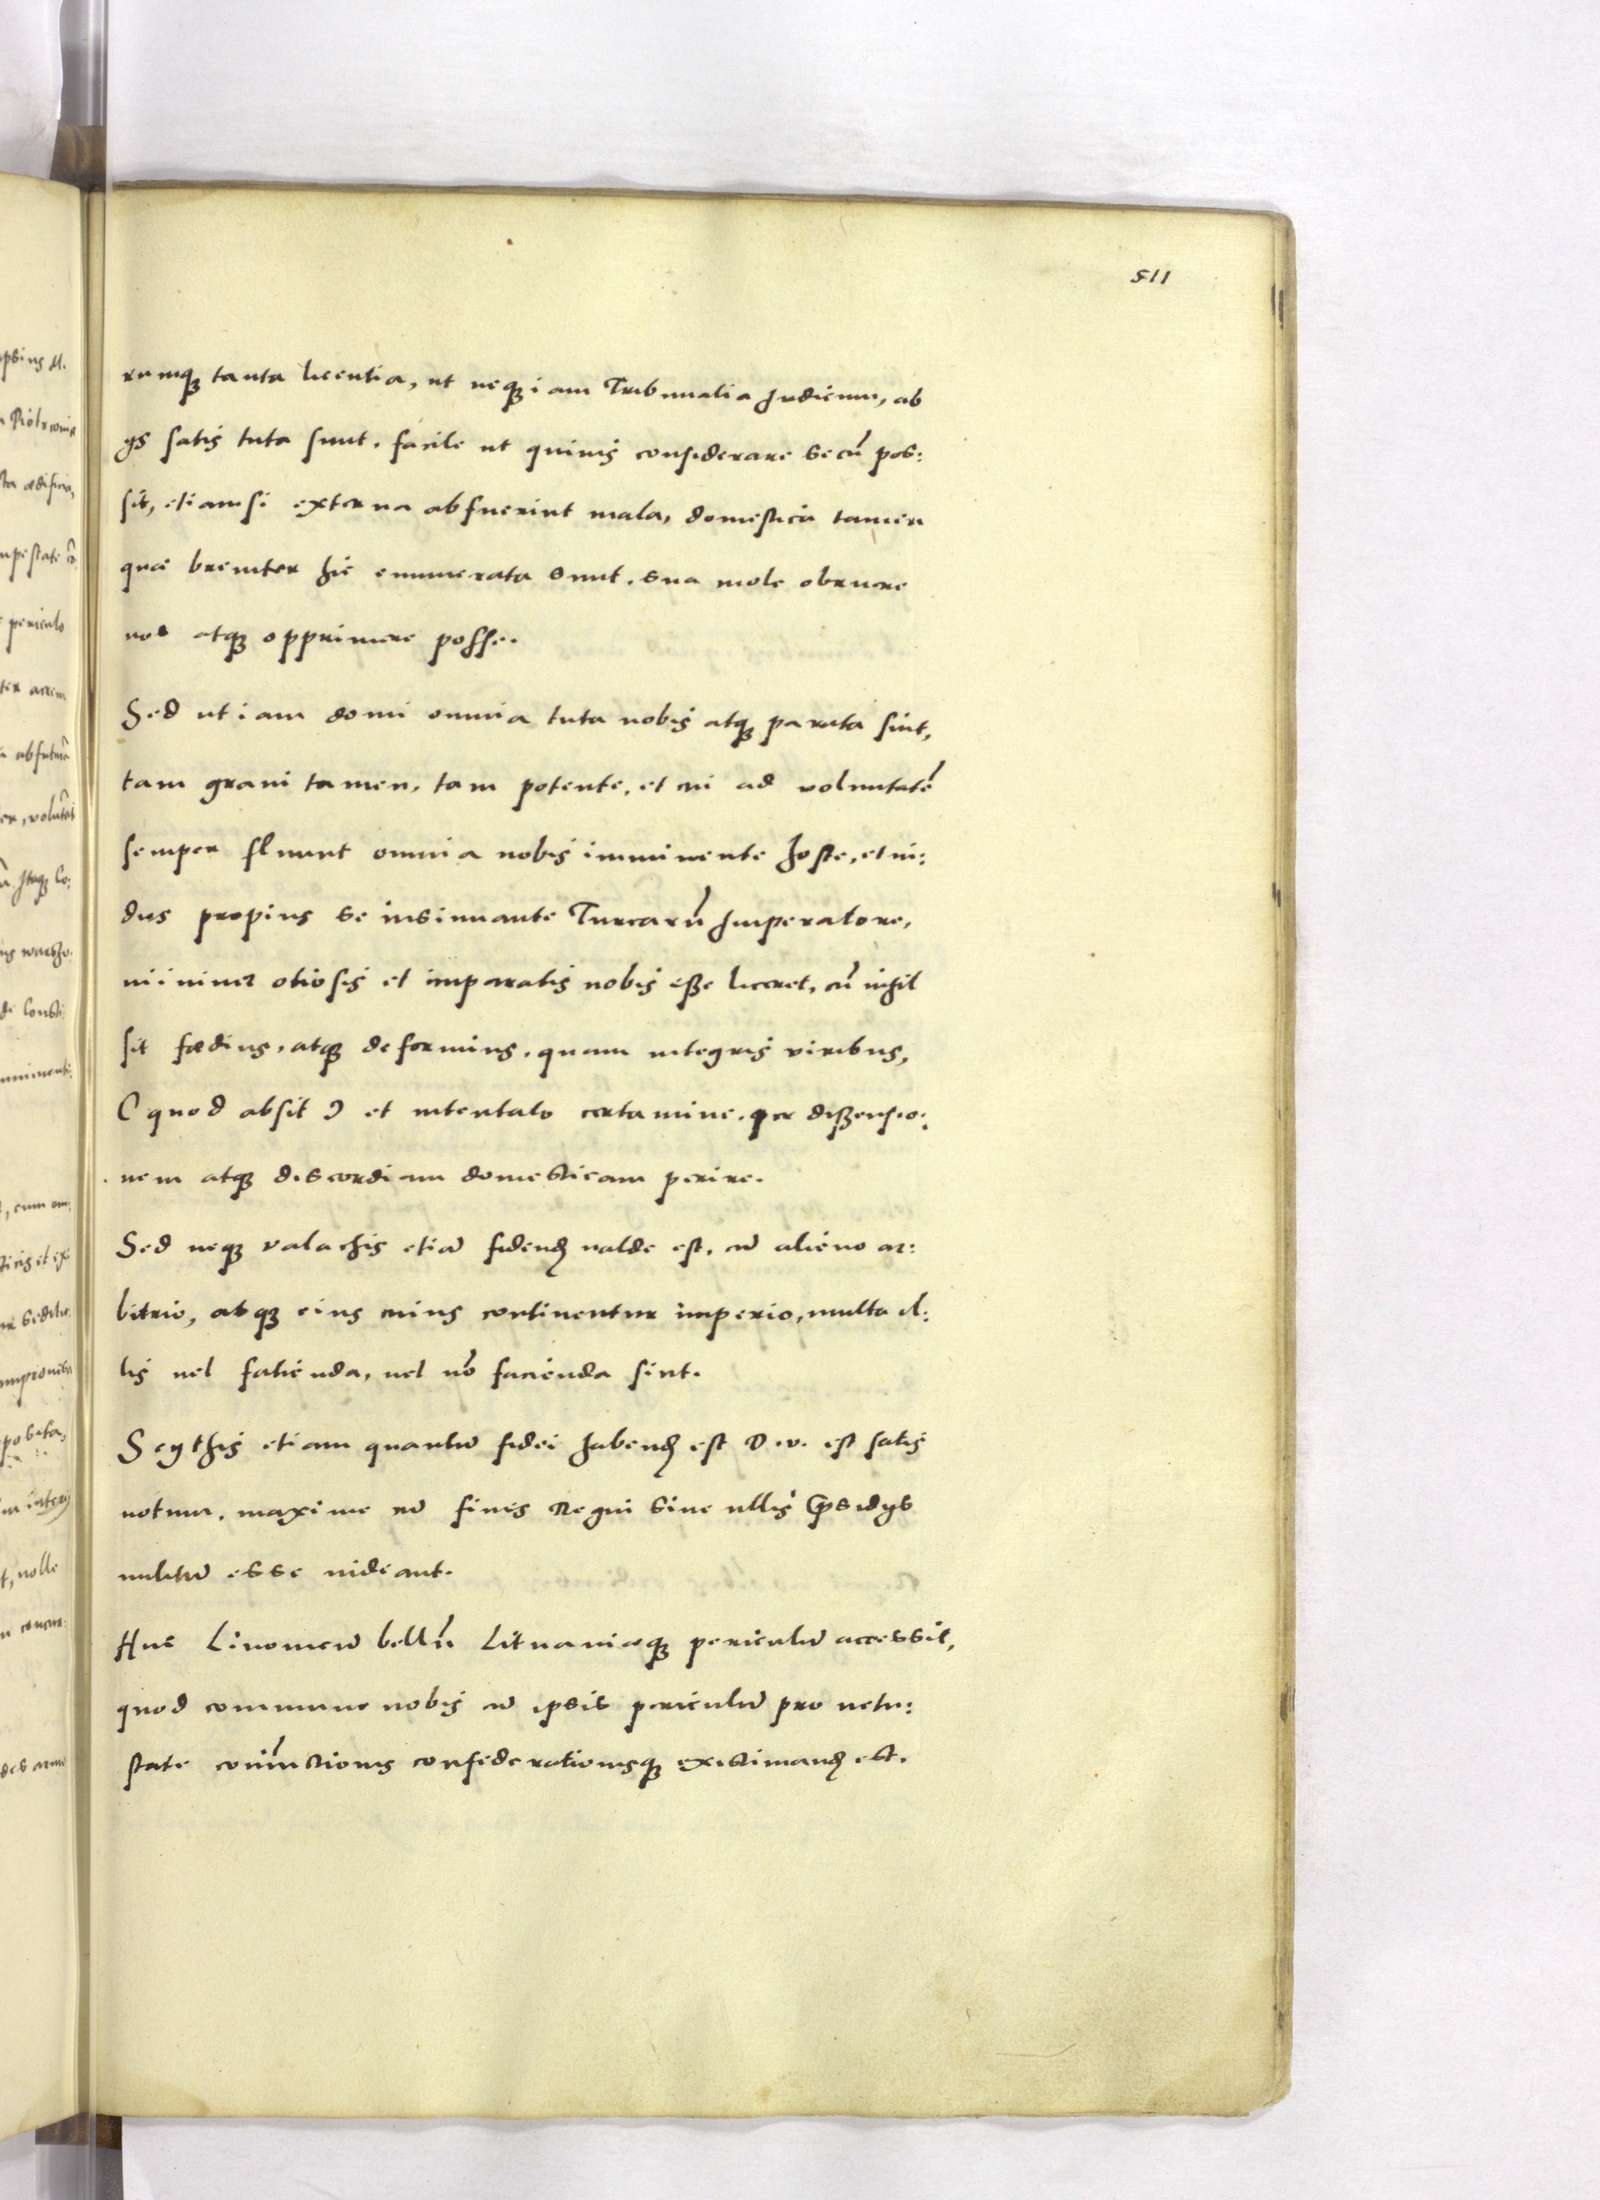 511
rumq₃ tanta licentia, ut neq₃ iam Tribunalia Judicum, ab
ijs satis tuta sunt. facile ut quiuis considerare secū pos:
sit, etiamsi externa abfuerint mala, domestica tamen
quæ breuiter hic enumerata sunt. sua mole obruere
nos atq₃ opprimere posse.
Sed ut iam domi omnia tuta nobis atq₃ parata sint,
tam graui tamen, tam potente, et cui ad voluntatē
semper fluunt omnia nobis imminente hoste, et in:
dies propius se insinuante Turcarū Imperatore,
minime otiosis et imparatis nobis esse liceret, cū nihil
sit fœdius, atq₃ deformius, quam integris viribus,
( quod absit ) et intentato certamine. per dissensio:
nem atq₃ discordiam domesticam perire.
Sed neq₃ valachis etiā fidend̄ ualde est, cū alieno ar:
bitrio, atq₃ eius cuius continentur imperio, multa il:
lis uel facienda, uel nō facienda sint.
Scythis etiam quantū fidei habend̄ est D. v. est satis
notum, maxime cū fines Regni sine ullis p̄sidijs
militū esse uideant.
Huc Liuonicū bellū Lituaniæq₃ periculū accessit,
quod commune nobis cū ipsis periculū pro uetu:
state coniūctionis confederationisq₃ existimand̄ est.
ipsius M.
periculo
t, nolle